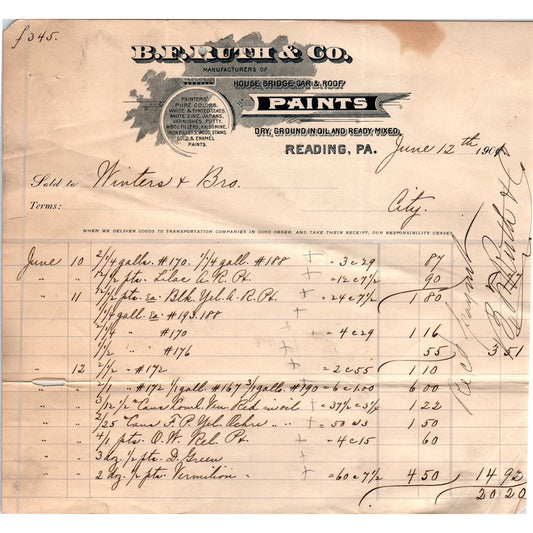 f 345.
B. F. RUTH & CO.
MANUFACTURERS OF
HOUSE, BRIDGE, CAR & ROOF
PAINTS
DRY, GROUND IN OIL AND READY MIXED,
PAINTERS'
PURE COLORS,
WHITE & TINTED LEADS,
WHITE ZINC, JAPANS,
VARNISHES, PUTTY,
WOOD FILLERS, KALSOMINE,
IRON FILLERS, WOOD STAINS,
GOLD & ENAMEL
PAINTS.
READING, PA. June 12th 190
Sold to Winters & Bro.
Terms: City.
WHEN WE DELIVER GOODS TO TRANSPORTATION COMPANIES IN GOOD ORDER, AND TAKE THEIR RECEIPT, OUR RESPONSIBILITY CEASES
June 10 2/1/4 galls. #170. 1/1/4 gall #188 = 3 @ 29 87
" " 12/1/2 pts. Lilac A. R. Pt. = 12 @ 7½ 90
" 11 1/2 pts. ea. Blk. Yel. A. R. Pt. = 24 @ 7½ 1 80
1/1/4 gall. ea. #193.188
1/1/4 " #170 = 4 @ 29 1 16
1/1/2 " #176 55 3 51
" 12 2/1/2 " #172 = 2 @ 55 1 10
" " 2/1 " #172 1/1 gall. #167 3/1 gall. #190 = 6 @ 1.00 6 00
" " 3/12½ " Cans Ven. Red in oil = 37½ @ 3¼ 1 22
" " 2/25 Cans F. P. Yel. Ochre = 50 @ 3 1 50
" " 4/1 pts. O. W. Pt. = 4 @ 15 60
" " 3 doz. ½ pts. D. Green
" " 2 doz. ½ pts. Vermilion = 60 @ 7½ 4 50 14 92
20 20
Rec'd Payment
B. F. Ruth & Co